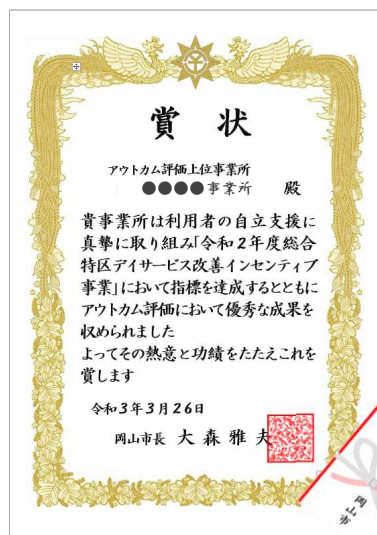 賞状
アウトカム評価上位事業所
●●●●事業所 殿
貴事業所は利用者の自立支援に
真摯に取り組み「令和２年度総合
特区デイサービス改善インセンティブ
事業」において指標を達成するとともに
アウトカム評価において優秀な成果を
収められました
よってその熱意と功績をたたえこれを
賞します
令和３年３月２６日
岡山市長 大森雅夫
岡山市